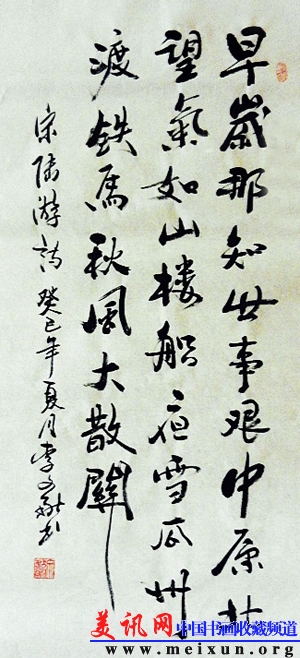 早歲那知世事艰中原北
望氣如山楼船夜雪瓜州
渡鉄馬秋風大散關
宋陆游詩 癸巳年夏月李文书
美讯网 中国书画收藏频道
www.meixun.org